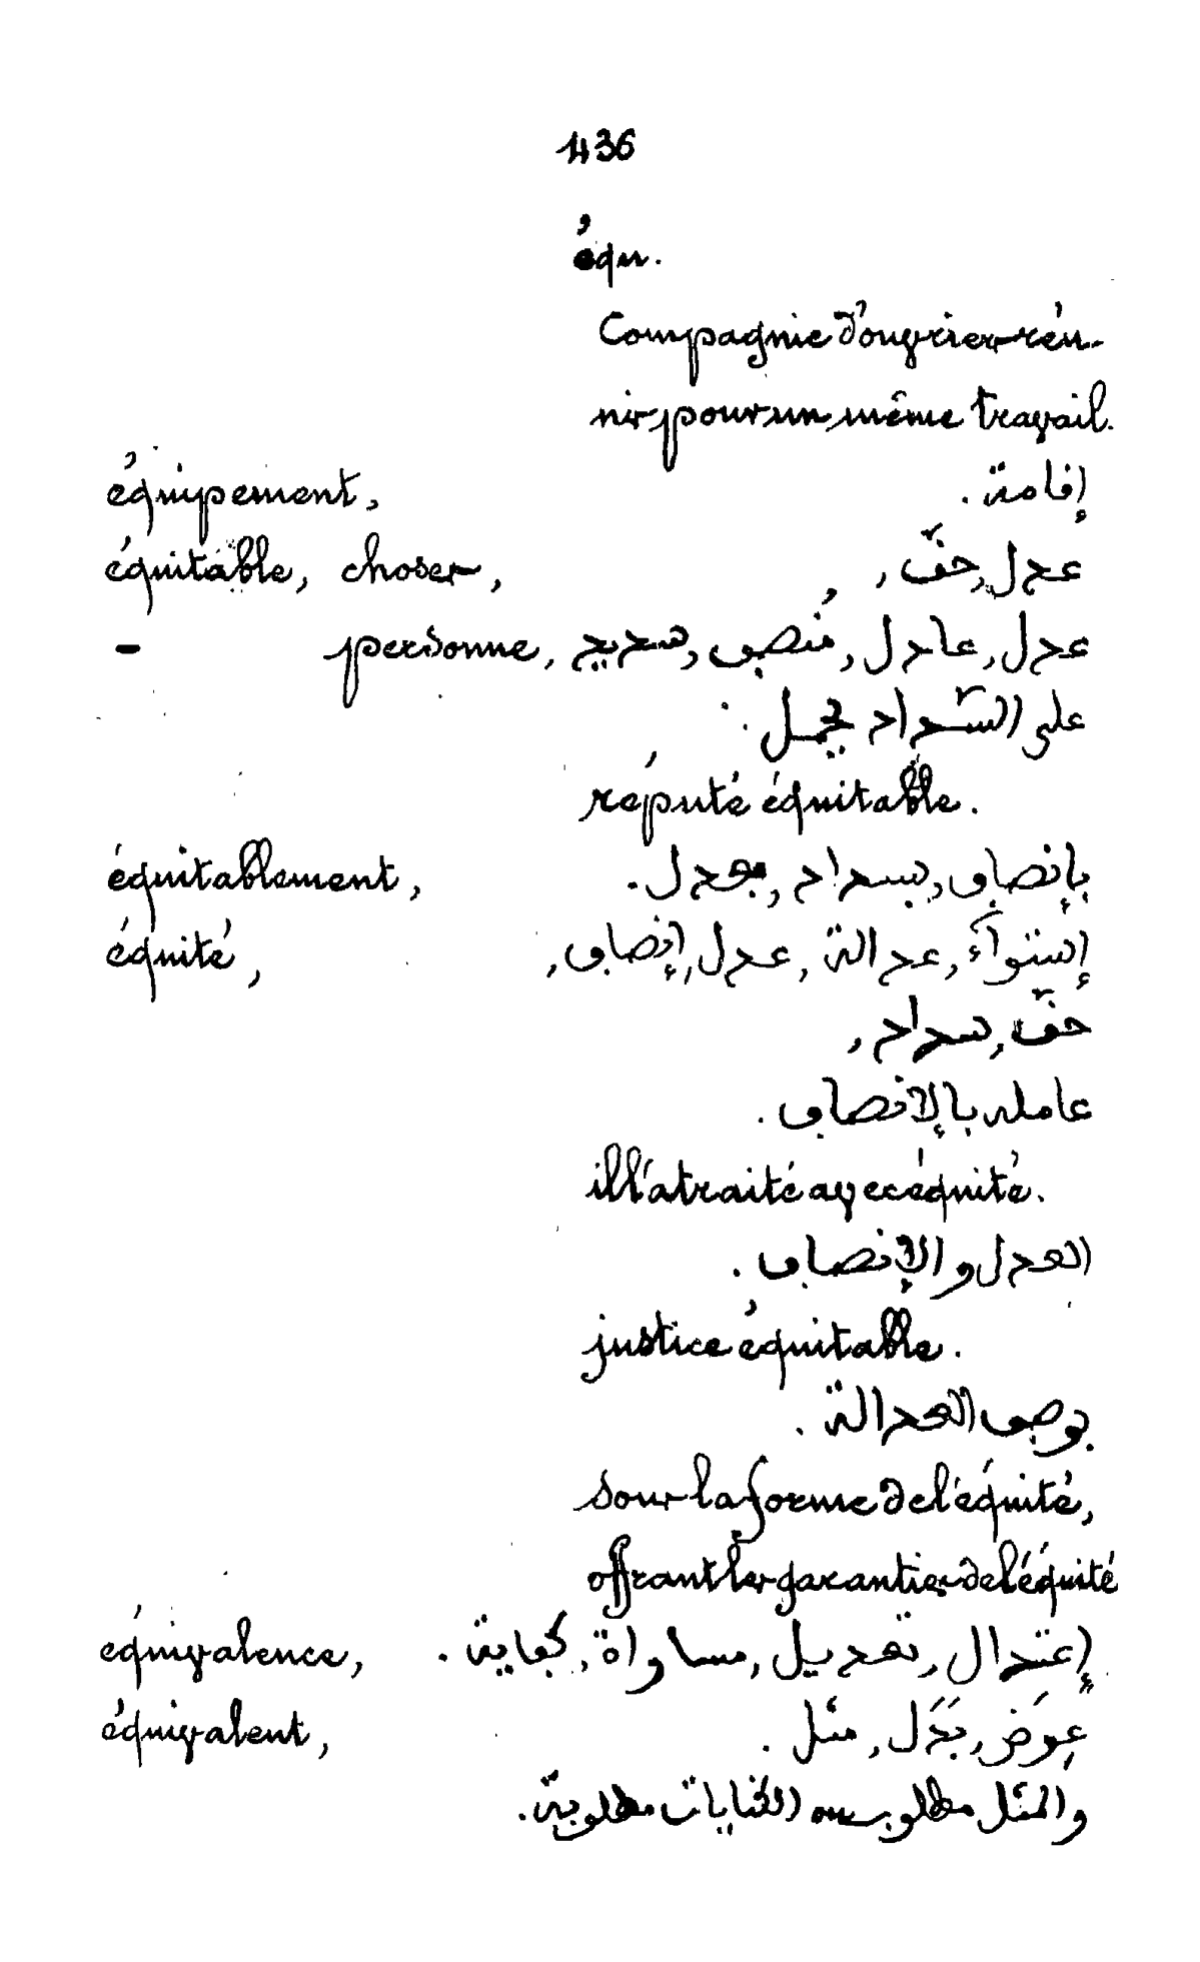 436
équ.
Compagnie d'ouvriers réu-
nis pour un même travail.
équipement, إفامة.
équitable, choses, عدل, حقّ,
— personne, عدل, عادل, مُنصف, سديد,
على السّداد يحمل.
réputé équitable.
équitablement, بإنصاف, بسداد, بعدل.
équité, إستوآء, عدالة, عدل, إنصاف,
حقّ, سداد,
عامله بالإنصاف.
il l'a traité avec équité.
العدل والإنصاف.
justice équitable.
بوصف العدالة.
sous la forme de l'équité,
offrant les garanties de l'équité
équivalence, إعتدال, تعديل, مساواة, كفاية.
équivalent, عِوَض, بَدَل, مثل.
والمثل مطلوب الكفايات مطلوبة.